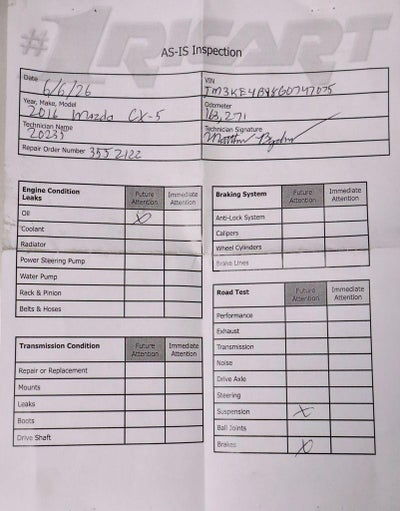 #1RICART
AS-IS Inspection
Date 6/6/26
VIN JM3KE4BY8G0747075
Year, Make, Model 2016 Mazda CX-5
Odometer 163,271
Technician Name 20235
Technician Signature Matthew
Repair Order Number 3552122
Engine Condition Future Attention Immediate Attention
Leaks
Oil X
Coolant
Radiator
Power Steering Pump
Water Pump
Rack & Pinion
Belts & Hoses
Transmission Condition Future Attention Immediate Attention
Repair or Replacement
Mounts
Leaks
Boots
Drive Shaft
Braking System Future Attention Immediate Attention
Anti-Lock System
Calipers
Wheel Cylinders
Brake Lines
Road Test Future Attention Immediate Attention
Performance
Exhaust
Transmission
Noise
Drive Axle
Steering
Suspension X
Ball Joints
Brakes X